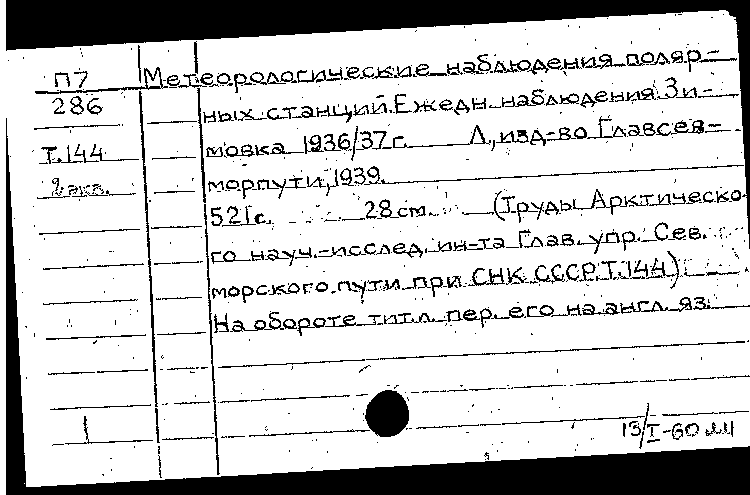 П7 Метеорологические наблюдения поляр-
286 ных станций. Ежедн. наблюдения. Зи-
Т.144 мовка 1936/37 г. Л., изд-во Главсев-
2 экз. морпути, 1939.
521 с. 28 см. (Труды Арктическо-
го науч.-исслед. ин-та Глав. упр. Сев.
морского пути при СНК СССР. Т.144)
На обороте титл. пер. его на англ. яз.
1
13/I-60